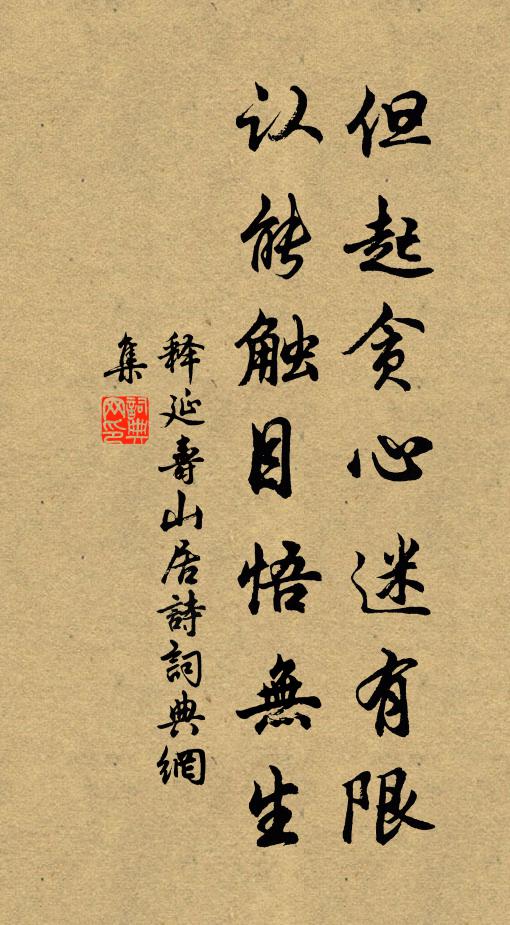 但起贪心迷有限
认能触目悟無生
释延壽山居詩詞典網
集
詞典
网印